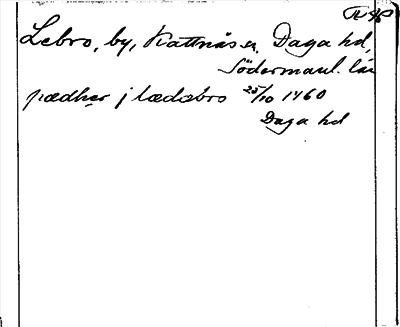 Lebro, by, Kattnäs sn, Daga hd,
Södermanl. län
pædher j lædebro 25/10 1460
Daga hd